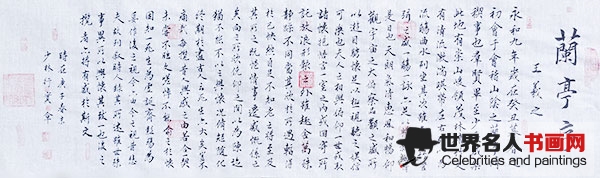 蘭亭序
王羲之
永和九年歲在癸丑
初會于會稽山陰之
稧事也羣賢畢至少
此地有崇山峻領茂
有清流激湍暎帶左右
流觴曲水列坐其次雖
弦之盛一觴一詠
是日也天朗氣清惠風和暢仰
觀宇宙之大俯察品類之盛所
以遊目騁懷足以極視聽之娛信
可樂也夫人之相與俯仰一世或取
諸懷抱悟言一室之內或因寄所
託放浪形骸之外雖趣舍萬殊
靜躁不同當其欣於所遇暫得
於己快然自足不知老之將至及
其所之既惓情隨事遷感慨係之
矣向之所欣俛仰之間以為陳迹
猶不能不以之興懷況脩短隨化
終期於盡古人云死生亦大矣豈不
痛哉每攬昔人興感之由若合一契
未嘗不臨文嗟悼不能喻之於懷
固知一死生為虛誕齊彭殤為
妄作後之視今亦由今之視昔悲
夫故列敘時人錄其所述雖世殊
事異所以興懷其致一也後之
攬者亦將有感於斯文
世界名人书画网
Celebrities and paintings